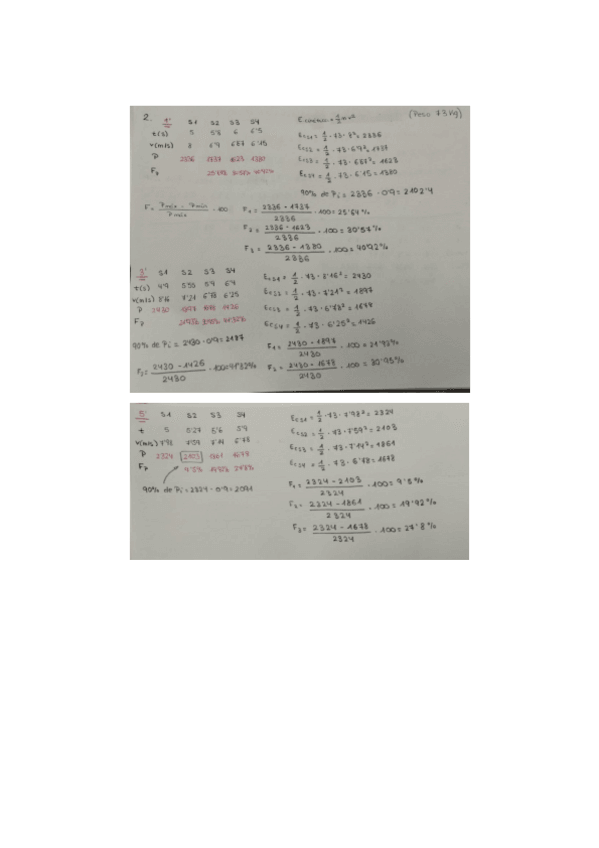 2. 1' S1 S2 S3 S4
t(s) 5 5'8 6 6'5
v(m/s) 8 6'9 6'87 6'15
P 2336 1737 1623 1380
Fp 25'64% 30'52% 40'92%
(Peso 73 Kg)
Ecinética = 1/2 m v²
Ecs1 = 1/2 · 73 · 8² = 2336
Ecs2 = 1/2 · 73 · 6'9² = 1737
Ecs3 = 1/2 · 73 · 6'67² = 1623
Ecs4 = 1/2 · 73 · 6'15 = 1380
90% de Pi = 2336 · 0'9 = 2102'4
F = Pmáx - Pmin / Pmáx · 100
F1 = 2336 - 1737 / 2336 · 100 = 25'64%
F2 = 2336 - 1623 / 2336 · 100 = 30'57%
F3 = 2336 - 1380 / 2336 · 100 = 40'92%
3' S1 S2 S3 S4
t(s) 4'9 5'55 5'9 6'4
v(m/s) 8'16 7'21 6'78 6'25
P 2430 1897 1678 1426
Fp 21'93% 31% 41'32%
Ecs1 = 1/2 · 73 · 8'16² = 2430
Ecs2 = 1/2 · 73 · 7'21² = 1897
Ecs3 = 1/2 · 73 · 6'78² = 1678
Ecs4 = 1/2 · 73 · 6'25² = 1426
90% de Pi = 2430 · 0'9 = 2187
F1 = 2430 - 1897 / 2430 · 100 = 21'92%
F3 = 2430 - 1426 / 2430 · 100 = 41'32%
F2 = 2430 - 1678 / 2430 · 100 = 30'95%
5' S1 S2 S3 S4
t 5 5'27 5'6 5'9
v(m/s) 7'98 7'59 7'14 6'78
P 2324 2103 1861 1678
Fp 9'5% 19'92% 27'8%
90% de Pi = 2324 · 0'9 = 2091
Ecs1 = 1/2 · 73 · 7'98² = 2324
Ecs2 = 1/2 · 73 · 7'59² = 2103
Ecs3 = 1/2 · 73 · 7'14² = 1861
Ecs4 = 1/2 · 73 · 6'78 = 1678
F1 = 2324 - 2103 / 2324 · 100 = 9'5%
F2 = 2324 - 1861 / 2324 · 100 = 19'92%
F3 = 2324 - 1678 / 2324 · 100 = 27'8%